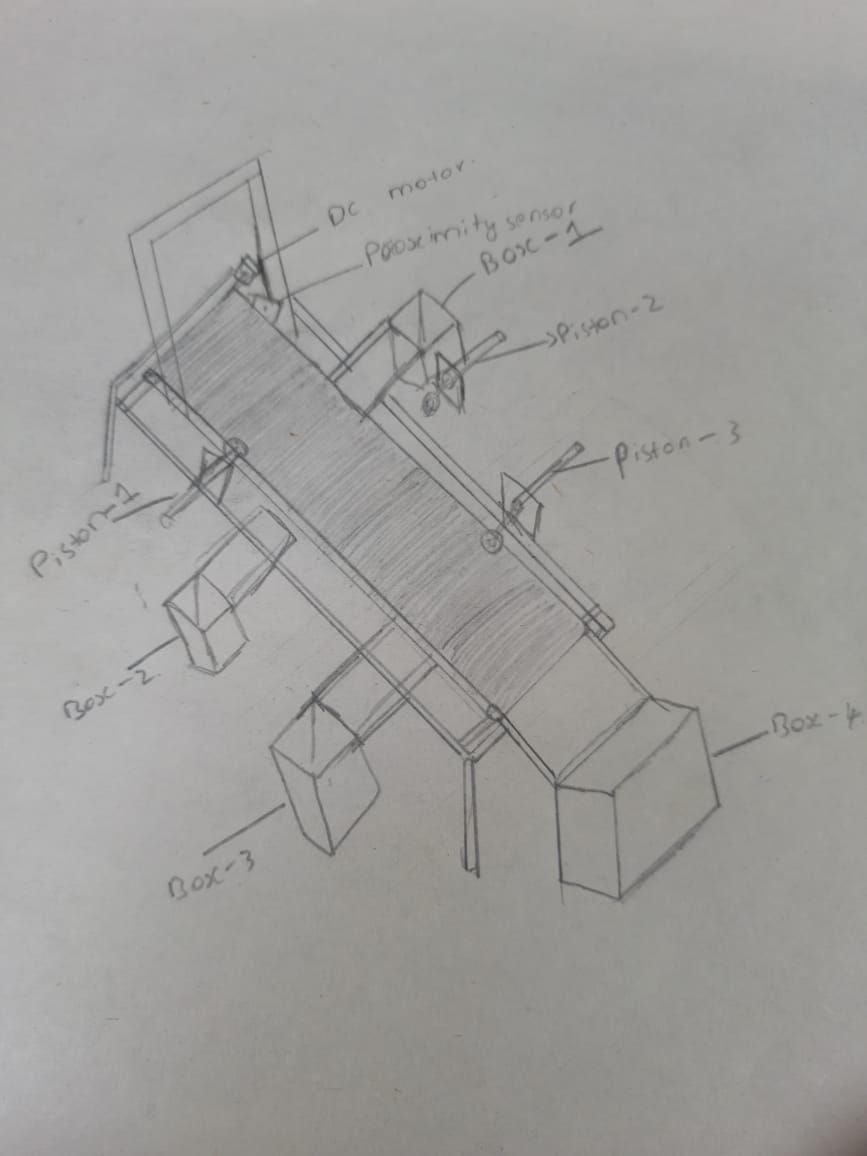 DC motor.
Proximity sensor
Box-1
Piston-2
Piston-3
Piston-1
Box-2
Box-4
Box-3